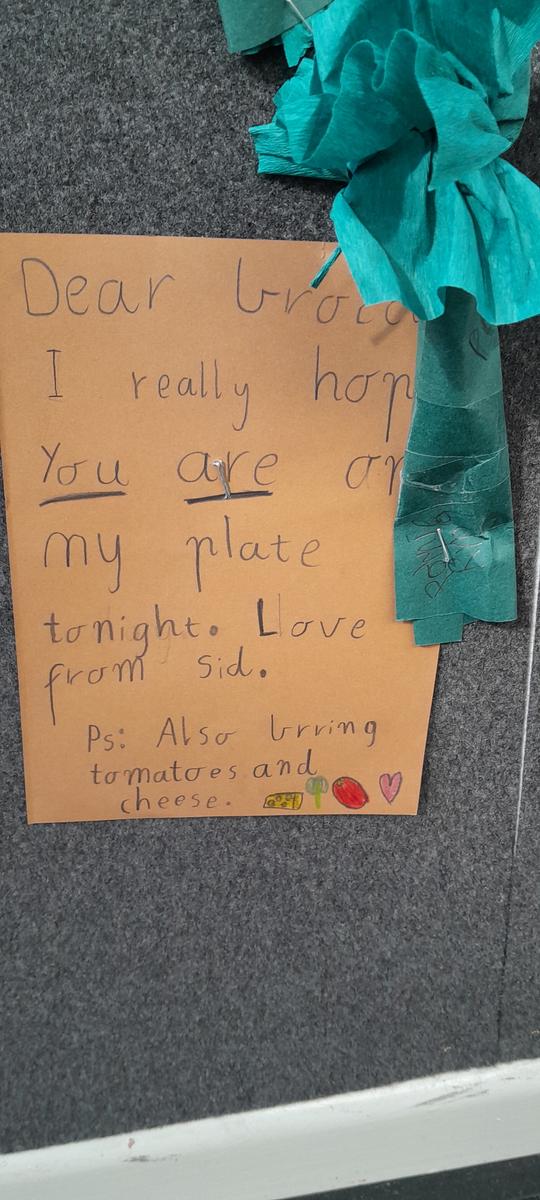 Dear brocc
I really hop
You are on
my plate
tonight. Love
from Sid.
Ps: Also brring
tomatoes and
cheese.